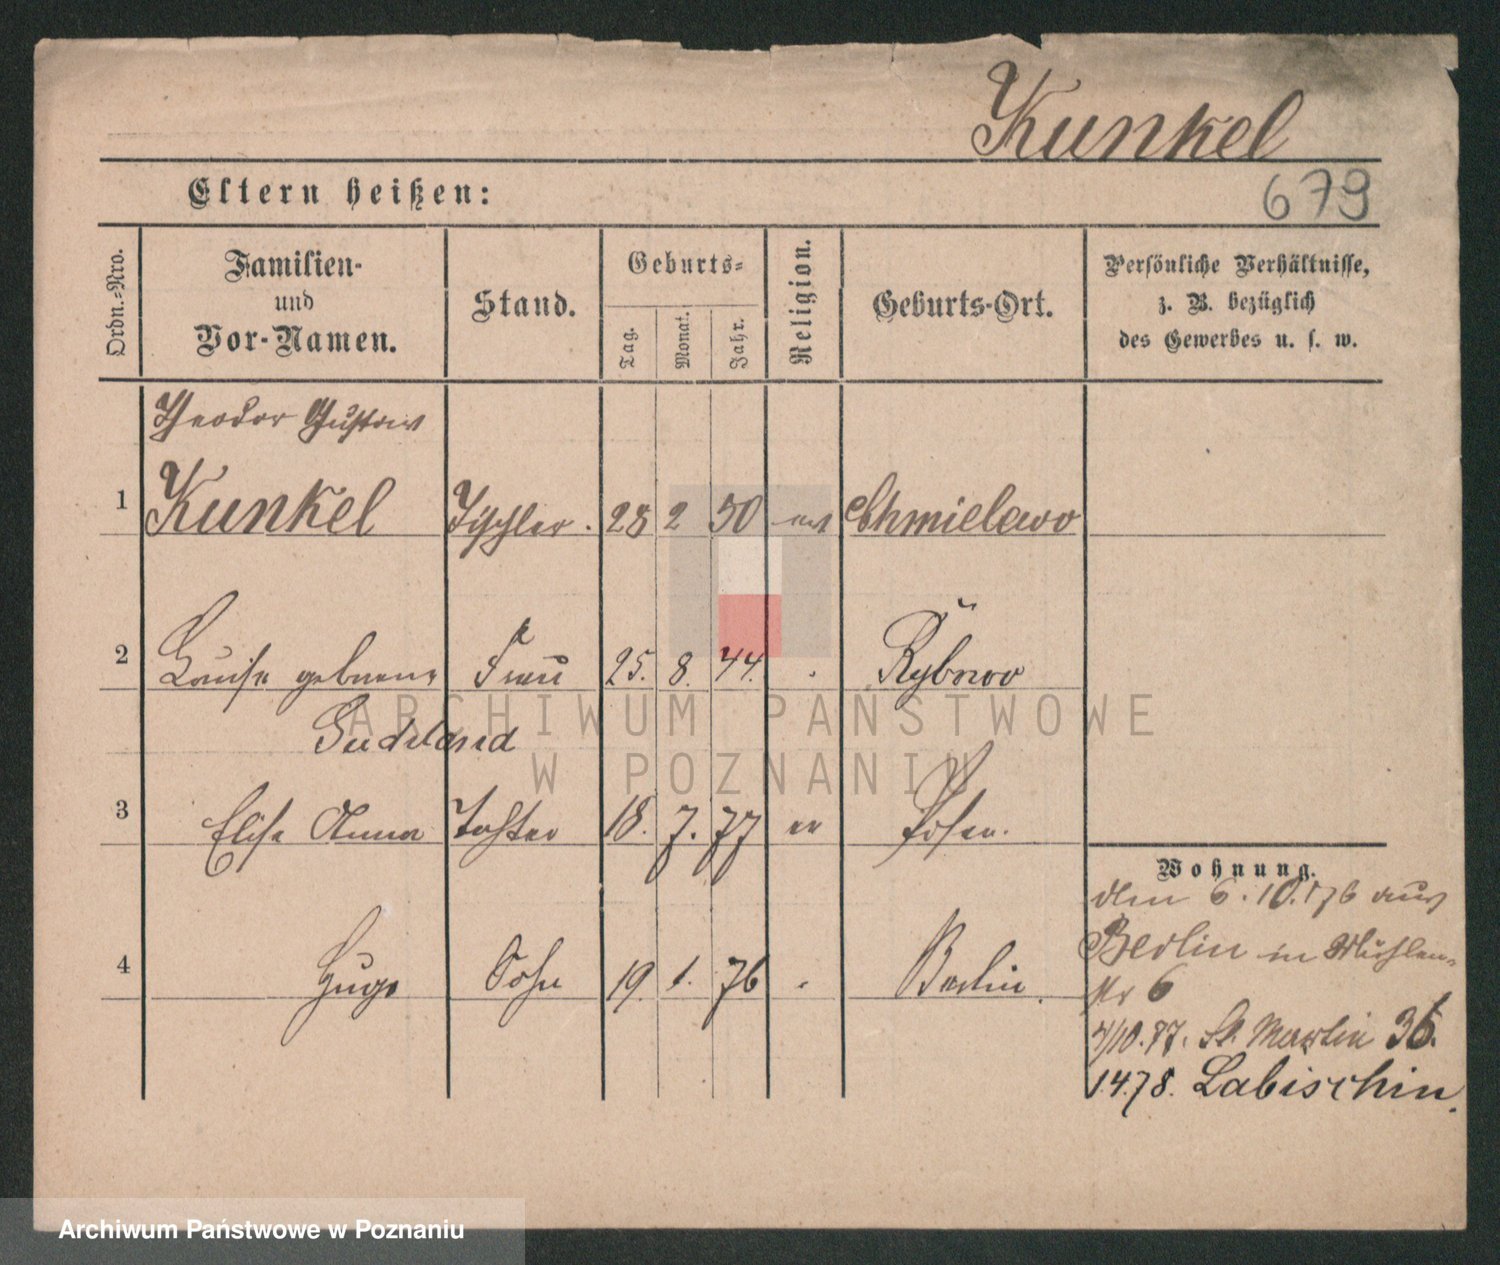 Kunkel
Eltern heißen:
679
Ordn.-Nro.
Familien-
und
Vor-Namen.
Stand.
Geburts-
Tag.
Monat.
Jahr.
Religion.
Geburts-Ort.
Persönliche Verhältnisse,
z. B. bezüglich
des Gewerbes u. s. w.
Theodor Gustav
1 Kunkel Tischler. 28 2 50 ev Chmielewo
2 Louise geborene Frau 25. 8. 44.
3 Elise Anna Tochter 18. 7. 77 ev Posen.
4 Hugo Sohn 19. 1. 76 Berlin.
Wohnung.
den 6.10.76 aus
Berlin in Mühlen-
str 6
4/10.77. St. Martin 36.
1.4.78. Labischin.
ARCHIWUM PAŃSTWOWE
W POZNANIU
Archiwum Państwowe w Poznaniu